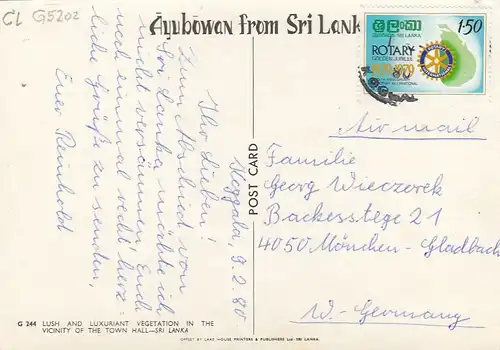 CL G5202
Ayubowan from Sri Lanka
ශ්‍රී ලංකා
SRI LANKA
1·50
ROTARY
GOLDEN JUBILEE
Koggala, 9.2.80
Ihr Lieben!
Zum Abschied von
Sri Lanka möchte ich
nicht versäumen, Euch
noch einmal recht herz-
liche Grüße zu senden,
Euer Reinhold
POST CARD
Air mail
Familie
Georg Wieczorek
Backesstege 21
4050 Mönchen-Gladbach
W.-Germany
G 244 LUSH AND LUXURIANT VEGETATION IN THE
VICINITY OF THE TOWN HALL—SRI LANKA
OFFSET BY LAKE HOUSE PRINTERS & PUBLISHERS Ltd. SRI LANKA.